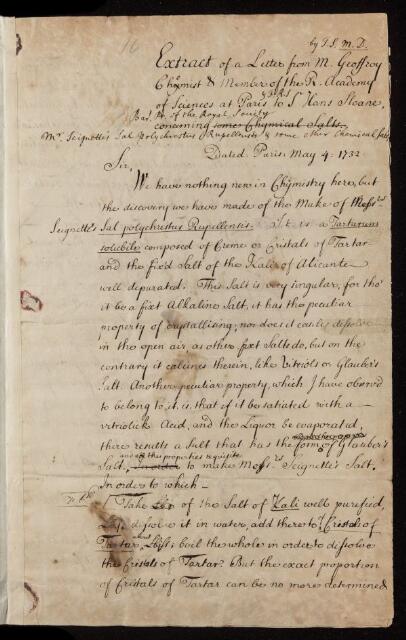 16
by T. S. M. D.
Extract of a Letter from M. Geoffroy
Chymist & Member of the R. Academy
of Sciences at Paris to Sr Hans Sloane,
Bart. Pr. of the Royal Society
concerning some Chymical Salts.
Mr. Seignette's Sal Polychrestus Rupellensis & some other Chemical Salts
Dated. Paris May 4. 1732
Sir,
We have nothing new in Chymistry here, but
the discovery we have made of the Make of Messrs
Seignette's Sal polychrestus Rupellensis. It is a Tartarum
solubile composed of Creme or Cristals of Tartar
and the fix'd Salt of the Kali of Alicante
well depurated. This Salt is very singular, for tho'
it be a fixt Alkaline Salt, it has the peculiar
property of crystallising; nor does it easily dissolve
in the open air as other fixt Salts do, but on the
contrary it calcines therein, like Vitriols or Glauber's
Salt. Another peculiar property, which I have observed
to belong to it, is, that if it be satiated with a
vitriolick Acid, and the Liquor be evaporated,
there results a Salt that has the form of Glauber's
and all the properties requisite
Salt, In order to make Messrs Seignette's Salt,
In order to which
Take of the Salt of Kali well purefied,
dissolve it in water, add thereto Cristals of
Tartar boil the whole in order to dissolve
the Cristals of Tartar. But the exact proportion
of Cristals of Tartar can be no more determined